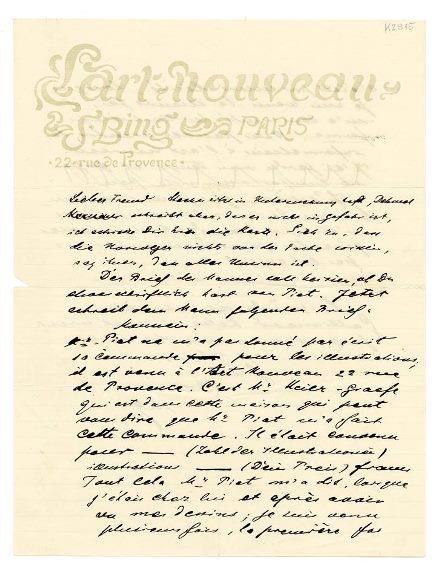 K2915
L'art Nouveau
S. Bing PARIS
22 rue de Provence
Lieber Freund
schreibt aber, dass er nicht in Gefahr ist,
ich schreibe Dir hier die Karte. Sieh zu, dass
die Norweger nichts von der Sache wissen,
sag ihnen, dass alles Unsinn ist.
Der Brief des Mannes
von Piat. Jetzt
schreib dem Mann folgenden Brief.
Monsieur:
Mr. Piat ne m'a pas donné par écrit
sa commande pour les illustrations,
il est venu à l'Art Nouveau 22 rue
de Provence. C'est Mr. Meier-Graefe
qui est dans cette maison qui peut
vous dire que Mr. Piat m'a fait
cette commande. Il était convenu
pour — (Zahl der Illustrationen)
illustrations — (Dein Preis) francs
Tout cela Mr. Piat m'a dit, lorsque
j'étais chez lui et après avoir
vu mes dessins; je suis venu
plusieurs fois, la première fois